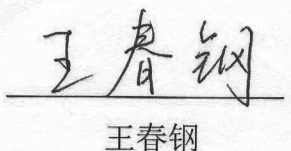 王春钢
王春钢